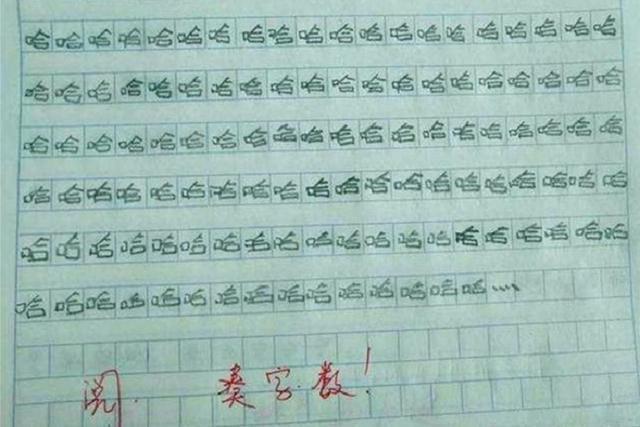 哈哈哈哈哈哈哈哈哈哈哈哈哈哈哈哈哈哈哈哈
哈哈哈哈哈哈哈哈哈哈哈哈哈哈哈哈哈哈哈哈
哈哈哈哈哈哈哈哈哈哈哈哈哈哈哈哈哈哈哈哈
哈哈哈哈哈哈哈哈哈哈哈哈哈哈哈哈哈哈哈哈
哈哈哈哈哈哈哈哈哈哈哈哈哈哈哈哈哈哈哈哈
哈哈哈哈哈哈哈哈哈哈哈哈哈哈哈....
阅. 奏字数!